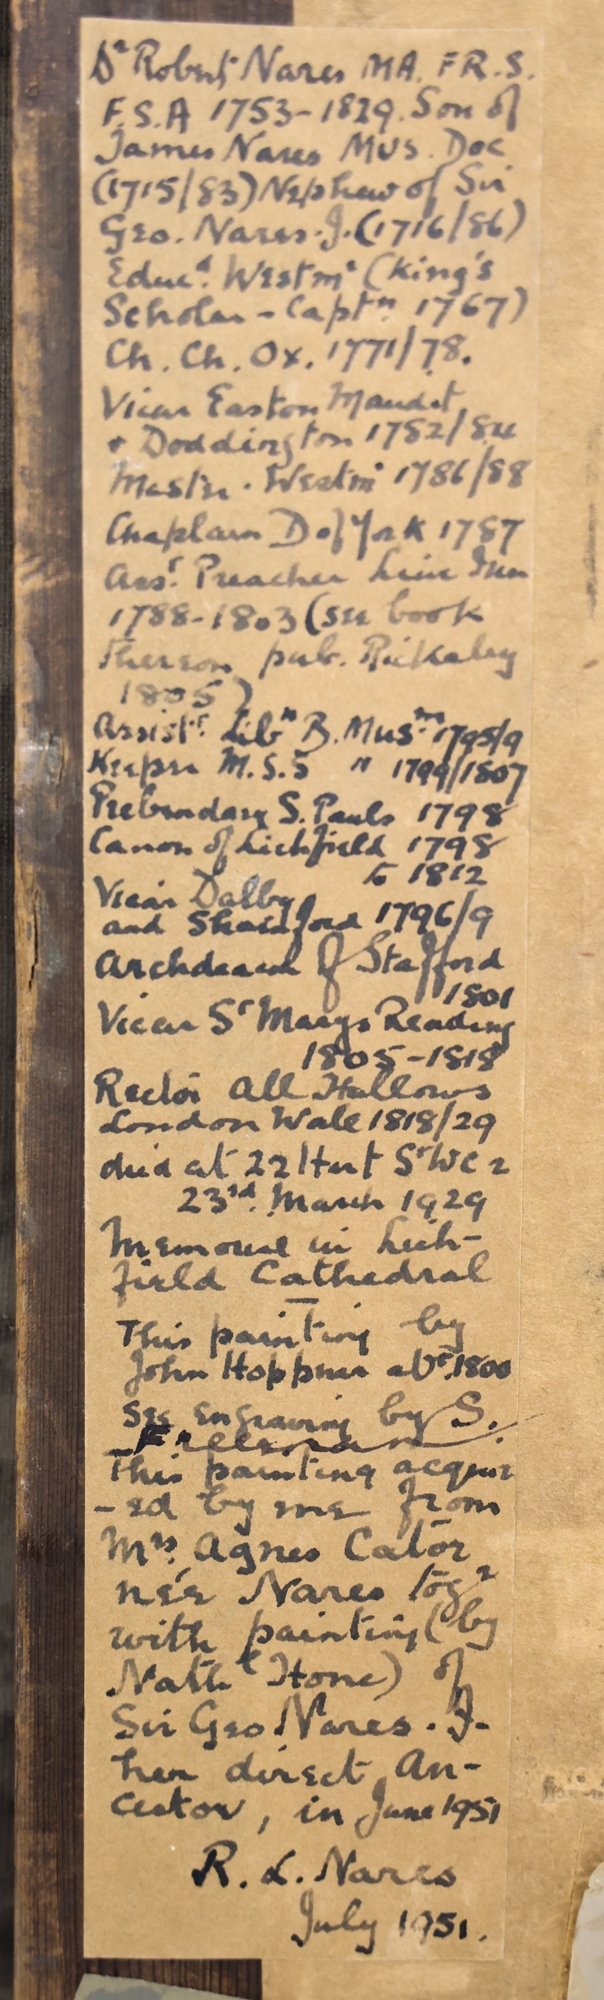 Dr Robert Nares MA. F.R.S.
F.S.A 1753-1829. Son of
James Nares Mus. Doc
(1715/83) Nephew of Sir
Geo. Nares. J. (1716/86)
Educd. Westmr (King's
Scholar - Captn. 1767)
Ch. Ch. Ox. 1771/78.
Vicar Easton Maudit
+ Doddington 1782/84
Master. Westmr 1786/88
Chaplain D of York 1787
Asst. Preacher Linc Inn
1788-1803 (see book
thereon pub. Rickaby
1805)
Assistt. Libn B. Musm 1795/9
Keeper M.S.S " 1799/1807
Prebendary S. Pauls 1798
Canon of Lichfield 1798
to 1812
Vicar Dalby
and Sharnford 1796/9
Archdeacon of Stafford
1801
Vicar St Marys Reading
1805-1818
Rector All Hallows
London Wall 1818/29
died at 22 Hart St WC2
23rd. March 1929
Memorial in Lich-
field Cathedral
This painting by
John Hoppner abt. 1800
See engraving by S.
Freeman.
This painting acquir
-ed by me from
Mrs. Agnes Cator
née Nares togr
with painting (by
Nathl Hone) of
Sir Geo Nares. J-
her direct An-
cestor, in June 1951
R. L. Nares
July 1951.